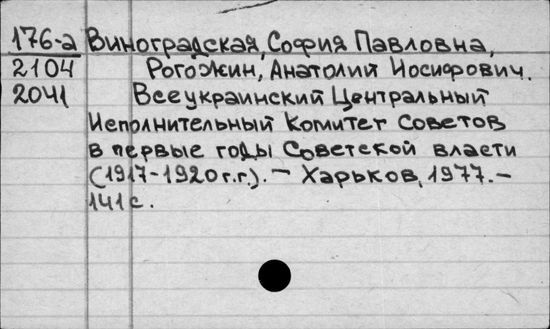 176-а Виноградская, София Павловна,
2104 Рогожин, Анатолий Иосифович.
2041 Всеукраинский Центральный
Исполнительный Комитет Советов
в первые годы Советской власти
(1917-1920г.г.). – Харьков, 1977. –
141с.